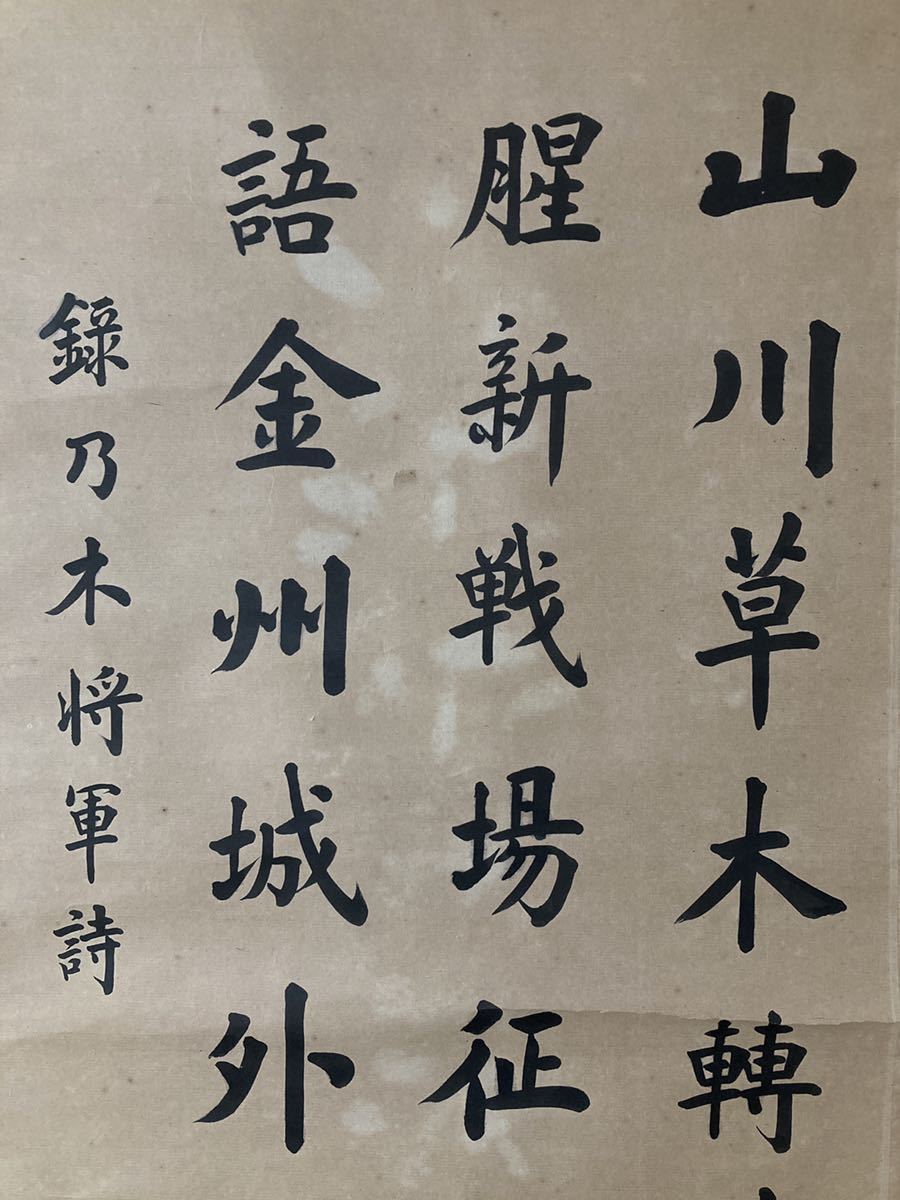 山川草木轉
腥新戦場征
語金州城外
錄乃木将軍詩